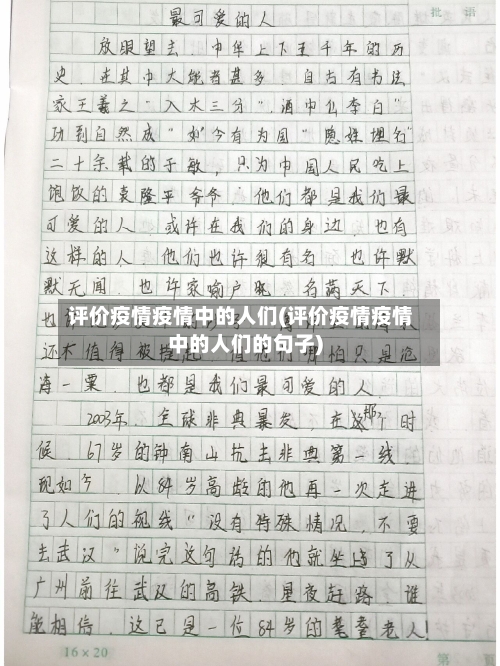 最可爱的人
批 语
放眼望去,中华上下五千年的历
史,在其中大能者甚多,自古有书法
家王羲之"入木三分",酒中仙李白"
功到自然成"如今有为国"隐姓埋名"
二十余载的于敏,只为中国人民吃上
饱饭的袁隆平爷爷:他们都是我们最
可爱的人,或许在我们的身边,也有
这样的人,他们也许很有名,也许默
默无闻,也许家喻户晓,名满天下
评价疫情疫情中的人们(评价疫情疫情
中的人们的句子)
还不值得被提起,但他们哪怕只是沧
海一粟,也都是我们最可爱的人。
2003年,全球非典暴发,在这个时
候,67岁的钟南山抗击非典第一线,
现如今,以84岁高龄的他再一次走进
了人们的视线"没有特殊情况,不要
去武汉"说完这句话的他就坐上了从
广州前往武汉的高铁,星夜赶路,谁
能相信,这已是一位84岁的耄耋老人!
16×20
第 页